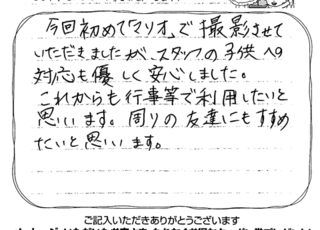 今回初めて「マリオ」で撮影させて
いただきましたが、スタッフの子供への
対応も優しく安心しました。
これからも行事等で利用したいと
思います。周りの友達にもすすめ
たいと思います。
ご記入いただきありがとうございます